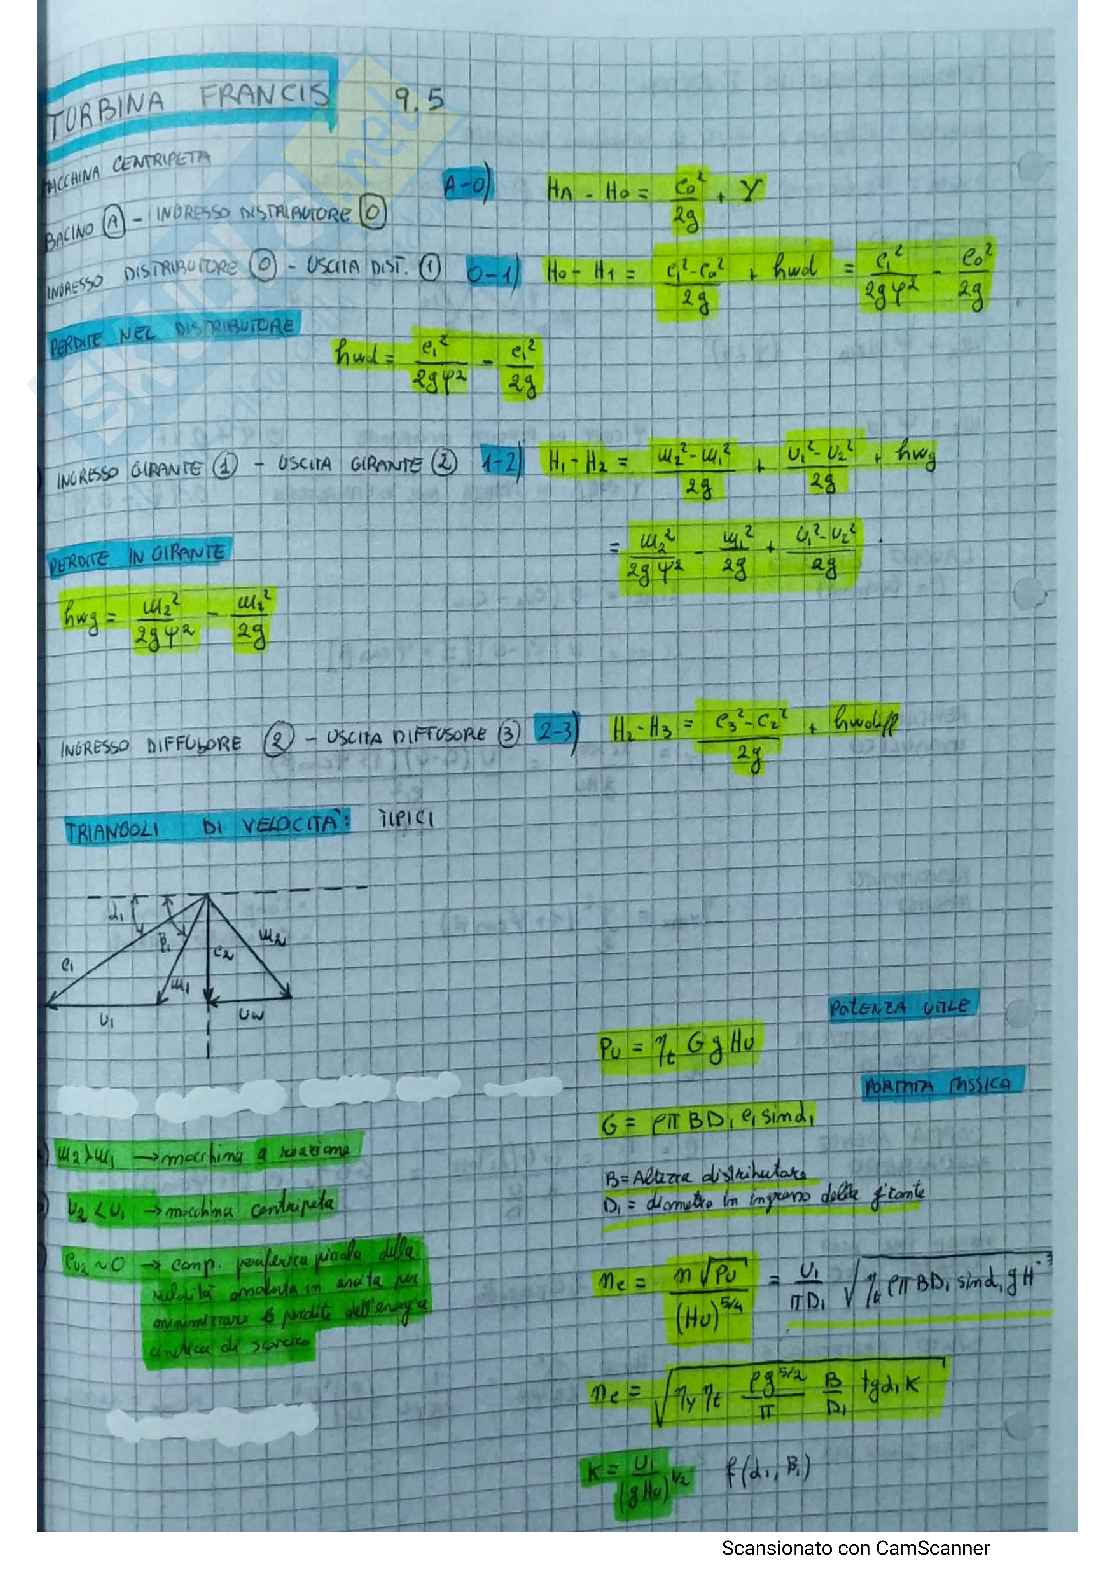 TURBINA FRANCIS 9.5
MACCHINA CENTRIPETA
BACINO (A) - INGRESSO DISTRIBUTORE (0) A-0) HA - H0 = c0²/2g + Y
INGRESSO DISTRIBUTORE (0) - USCITA DIST. (1) 0-1) H0 - H1 = (c1² - c0²)/2g + hwd = c1²/2gφ² - c0²/2g
PERDITE NEL DISTRIBUTORE
hwd = c1²/2gφ² - c1²/2g
INGRESSO GIRANTE (1) - USCITA GIRANTE (2) 1-2) H1 - H2 = (w2² - w1²)/2g + (U1² - U2²)/2g + hwg
= w2²/2gψ² - w1²/2g + (U1² - U2²)/2g
PERDITE IN GIRANTE
hwg = w2²/2gψ² - w2²/2g
INGRESSO DIFFUSORE (2) - USCITA DIFFUSORE (3) 2-3) H2 - H3 = (c3² - c2²)/2g + hwdiff
TRIANGOLI DI VELOCITÀ: TIPICI
α1 β1 c1 w1 c2 w2
U1
POTENZA UTILE
PU = ηt G g HU
PORTATA MASSICA
G = ρπ B D1 c1 sinα1
B = Altezza distributore
D1 = diametro in ingresso della girante
w2 > w1 → macchina a reazione
U2 < U1 → macchina centripeta
cu2 ~ 0 → comp. periferica piccola della
velocità assoluta in uscita per
minimizzare le perdite dell'energia
cinetica di scarico
nc = n√PU/(HU)^5/4 = U1/πD1 √ηt ρπ B D1 sinα1 g H^-3
nc = √ηy ηt ρg^5/2/π B/D1 tgα1 K
K = U1/(gHU)^1/2 f(α1, β1)
Scansionato con CamScanner